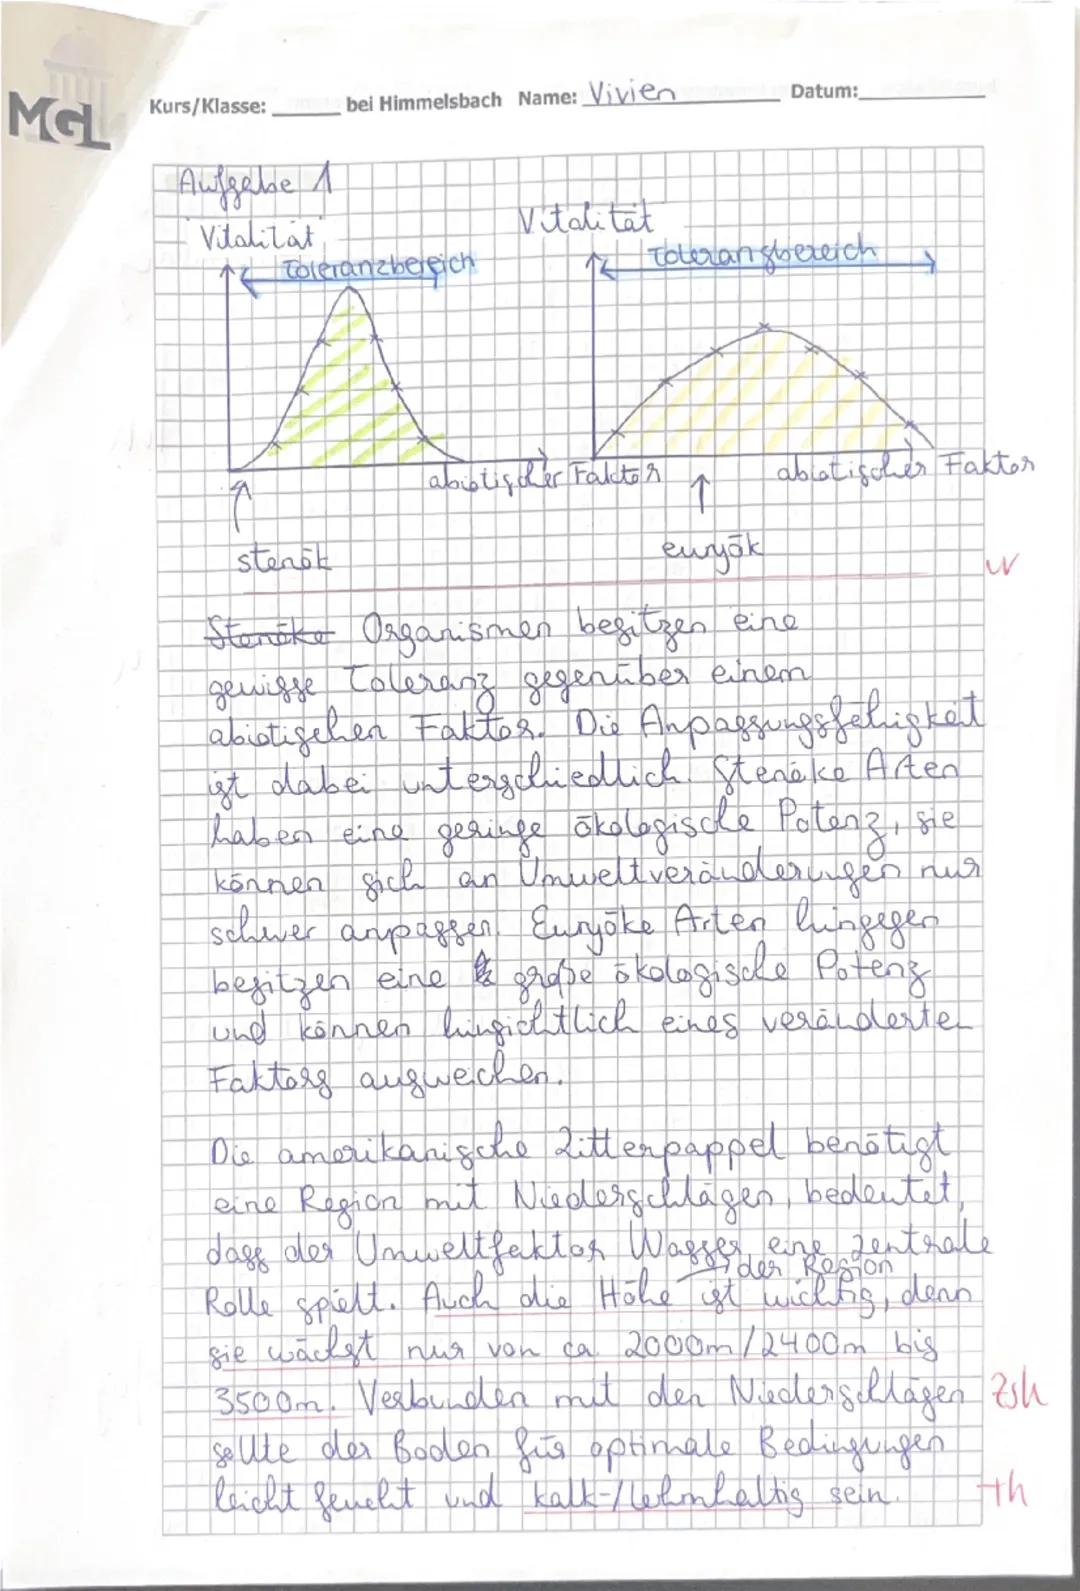 MGL
Kurs/Klasse: ______ bei Himmelsbach Name: Vivien Datum:______
Aufgabe 1
Vitalität
Vitalität
Toleranzbereich
Toleranzbereich
abiotischer Faktor
abiotischer Faktor
stenök
euryök
Stenöke Organismen besitzen eine
gewisse Toleranz gegenüber einem
abiotischen Faktor. Die Anpassungsfähigkeit
ist dabei unterschiedlich. Stenöke Arten
haben eine geringe ökologische Potenz, sie
können sich an Umweltveränderungen nur
schwer anpassen. Euryöke Arten hingegen
besitzen eine große ökologische Potenz
und können hinsichtlich eines veränderten
Faktors ausweichen.
Die amerikanische Zitterpappel benötigt
eine Region mit Niederschlägen, bedeutet,
dass der Umweltfaktor Wasser eine zentrale
der Region
Rolle spielt. Auch die Höhe ist wichtig, denn
sie wächst nur von ca. 2000m/2400m bis
3500m. Verbunden mit den Niederschlägen Zsh
sollte der Boden für optimale Bedingungen
leicht feucht und kalk-/lehmhaltig sein. +h